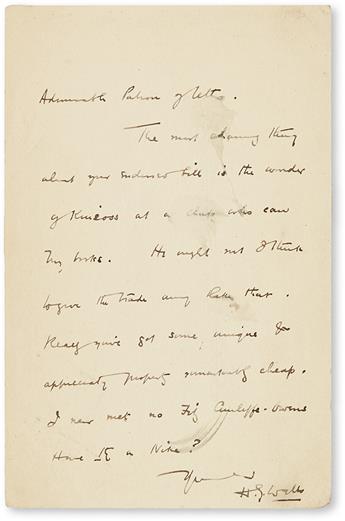 Admirable Patron of letts.
The most charming thing
about your enclosed bill is the wonder
of Kinross at a chap who can
buy books. He ought not I think
to give the trade away like that.
Really you've got some unique &
appreciatg property cheap.
I never met no Fitz Cunliffe-Owens
Have I? a Nike?
Yours
H.G. Wells